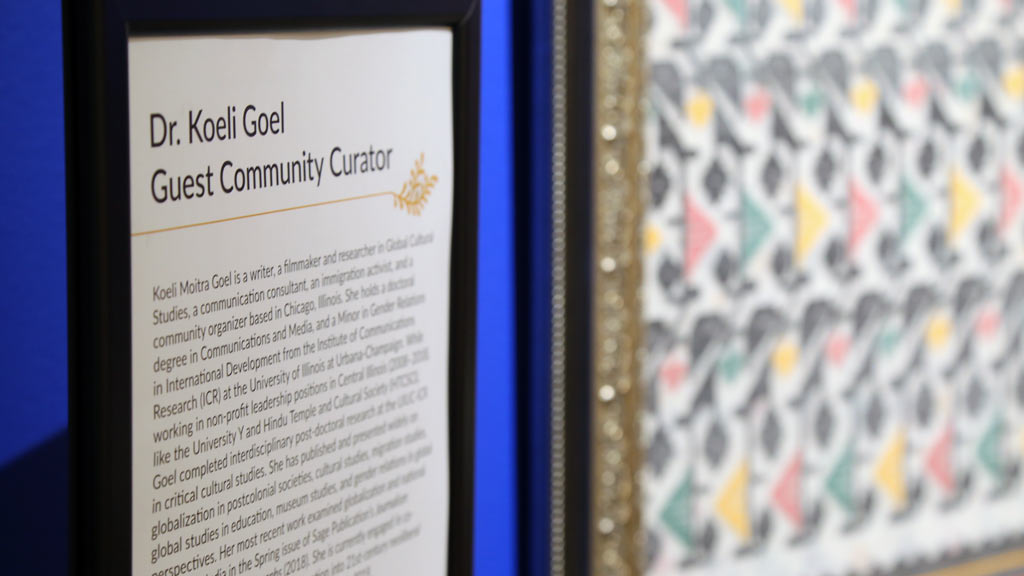 Dr. Koeli Goel
Guest Community Curator
Koeli Moitra Goel is a writer, a filmmaker and researcher in Global Cultural
Studies, a communication consultant, an immigration activist, and a
community organizer based in Chicago, Illinois. She holds a doctoral
degree in Communications and Media, and a Minor in Gender Relations
in International Development from the Institute of Communications
Research (ICR) at the University of Illinois at Urbana-Champaign. While
working in non-profit leadership positions in Central Illinois (2008-2018)
like the University Y and Hindu Temple and Cultural Society (HTCSCI),
Goel completed interdisciplinary post-doctoral research at the UIUC-ICR
in critical cultural studies. She has published and presented widely on
globalization in postcolonial societies, cultural studies, migration studies,
global studies in education, museum studies, and gender relations in global
perspectives. Her most recent work examined globalization and national
in the Spring issue of Sage Publication's Journalism
(2018). She is currently engaged in
into 21st-century neoliberal